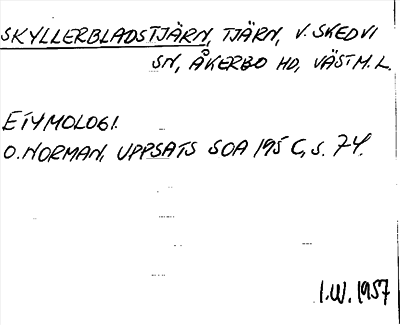 SKYLLERBLADSTJÄRN, TJÄRN, V. SKEDVI
SN, ÅKERBO HD, VÄSTM. L.
ETYMOLOGI.
O. NORMAN, UPPSATS SOA 195 C, S. 74.
I.W. 1957